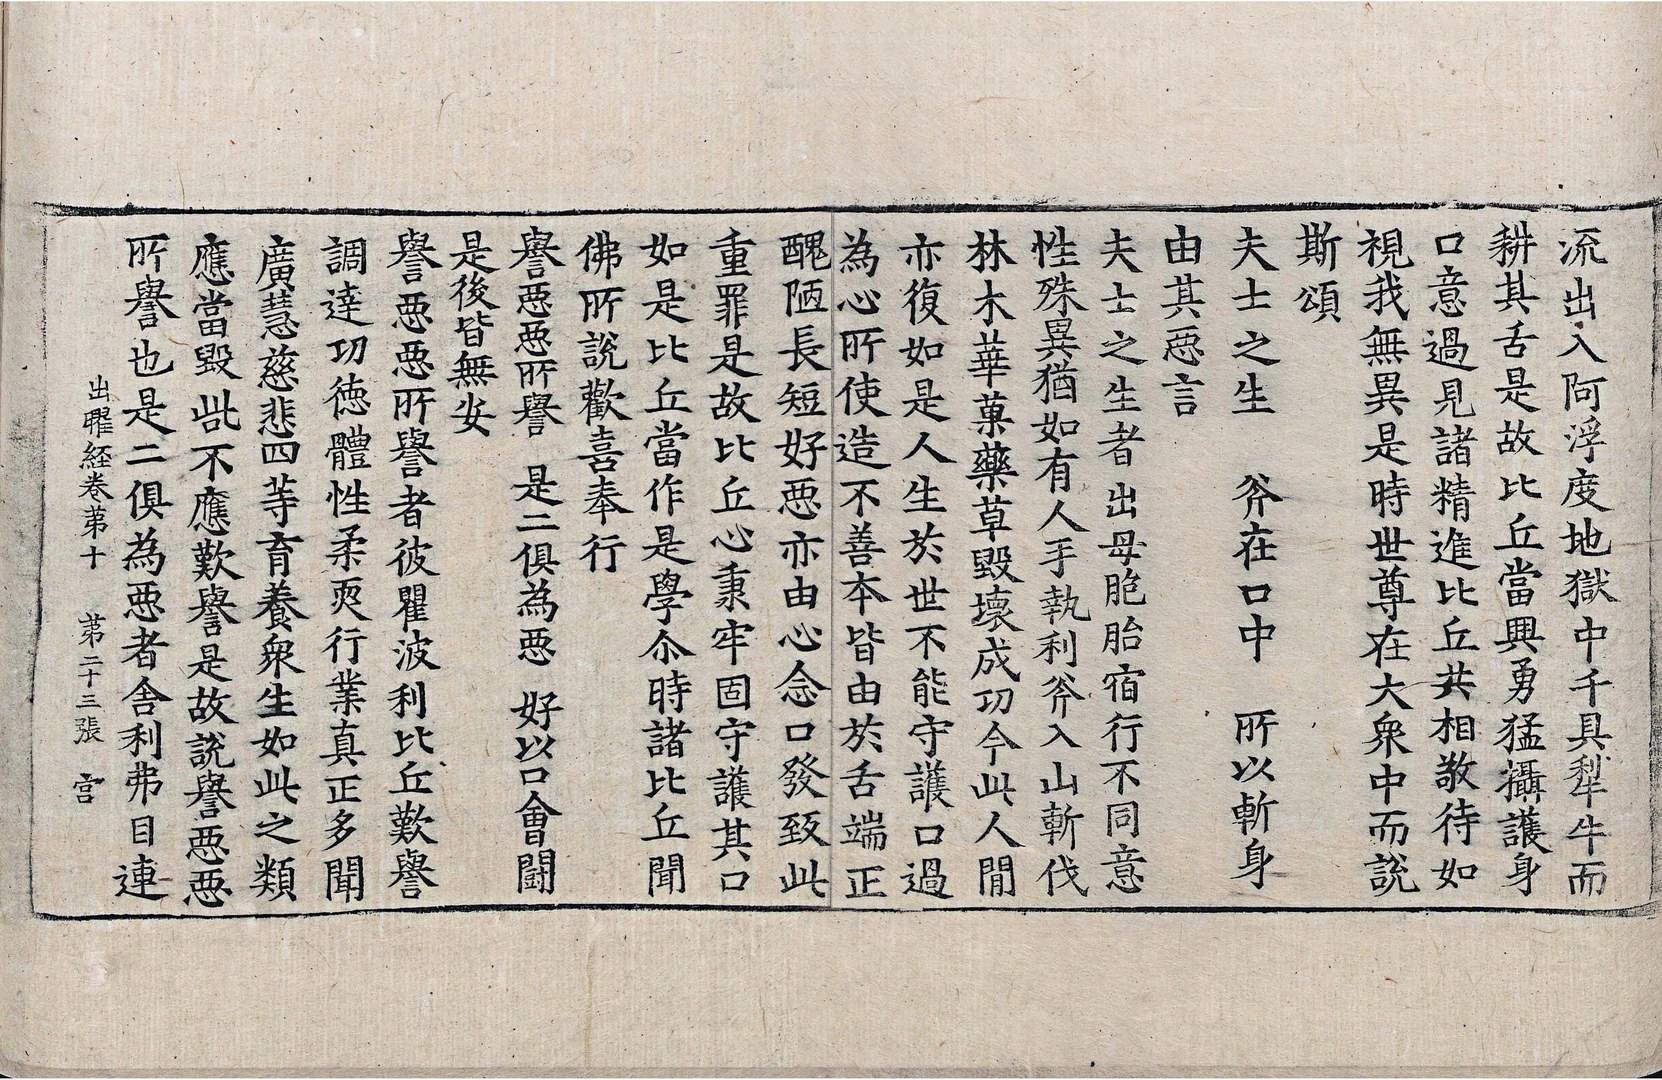 流出入阿浮度地獄中千具犁牛而
耕其舌是故比丘當興勇猛攝護身
口意過見諸精進比丘共相敬待如
視我無異是時世尊在大衆中而說
斯頌
夫士之生　斧在口中　所以斬身
由其惡言
夫士之生者出母胞胎宿行不同意
性殊異猶如有人手執利斧入山斬伐
林木華菓藥草毀壞成功今此人間
亦復如是人生於世不能守護口過
為心所使造不善本皆由於舌端正
醜陋長短好惡亦由心念口發致此
重罪是故比丘心秉牢固守護其口
如是比丘當作是學尒時諸比丘聞
佛所說歡喜奉行
譽惡惡所譽　是二俱為惡　好以口會鬪
是後皆無安
譽惡惡所譽者彼瞿波利比丘歎譽
調達功德體性柔耎行業真正多聞
廣慧慈悲四等育養衆生如此之類
應當毀呰不應歎譽是故說譽惡惡
所譽也是二俱為惡者舍利弗目連
出曜經卷第十　第二十三張　宮